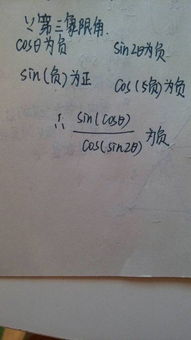 ∵第三象限角.
cosθ为负 sin2θ为负
sin(负)为正 cos(s负)为负
∴ sin(cosθ)/cos(sin2θ) 为负